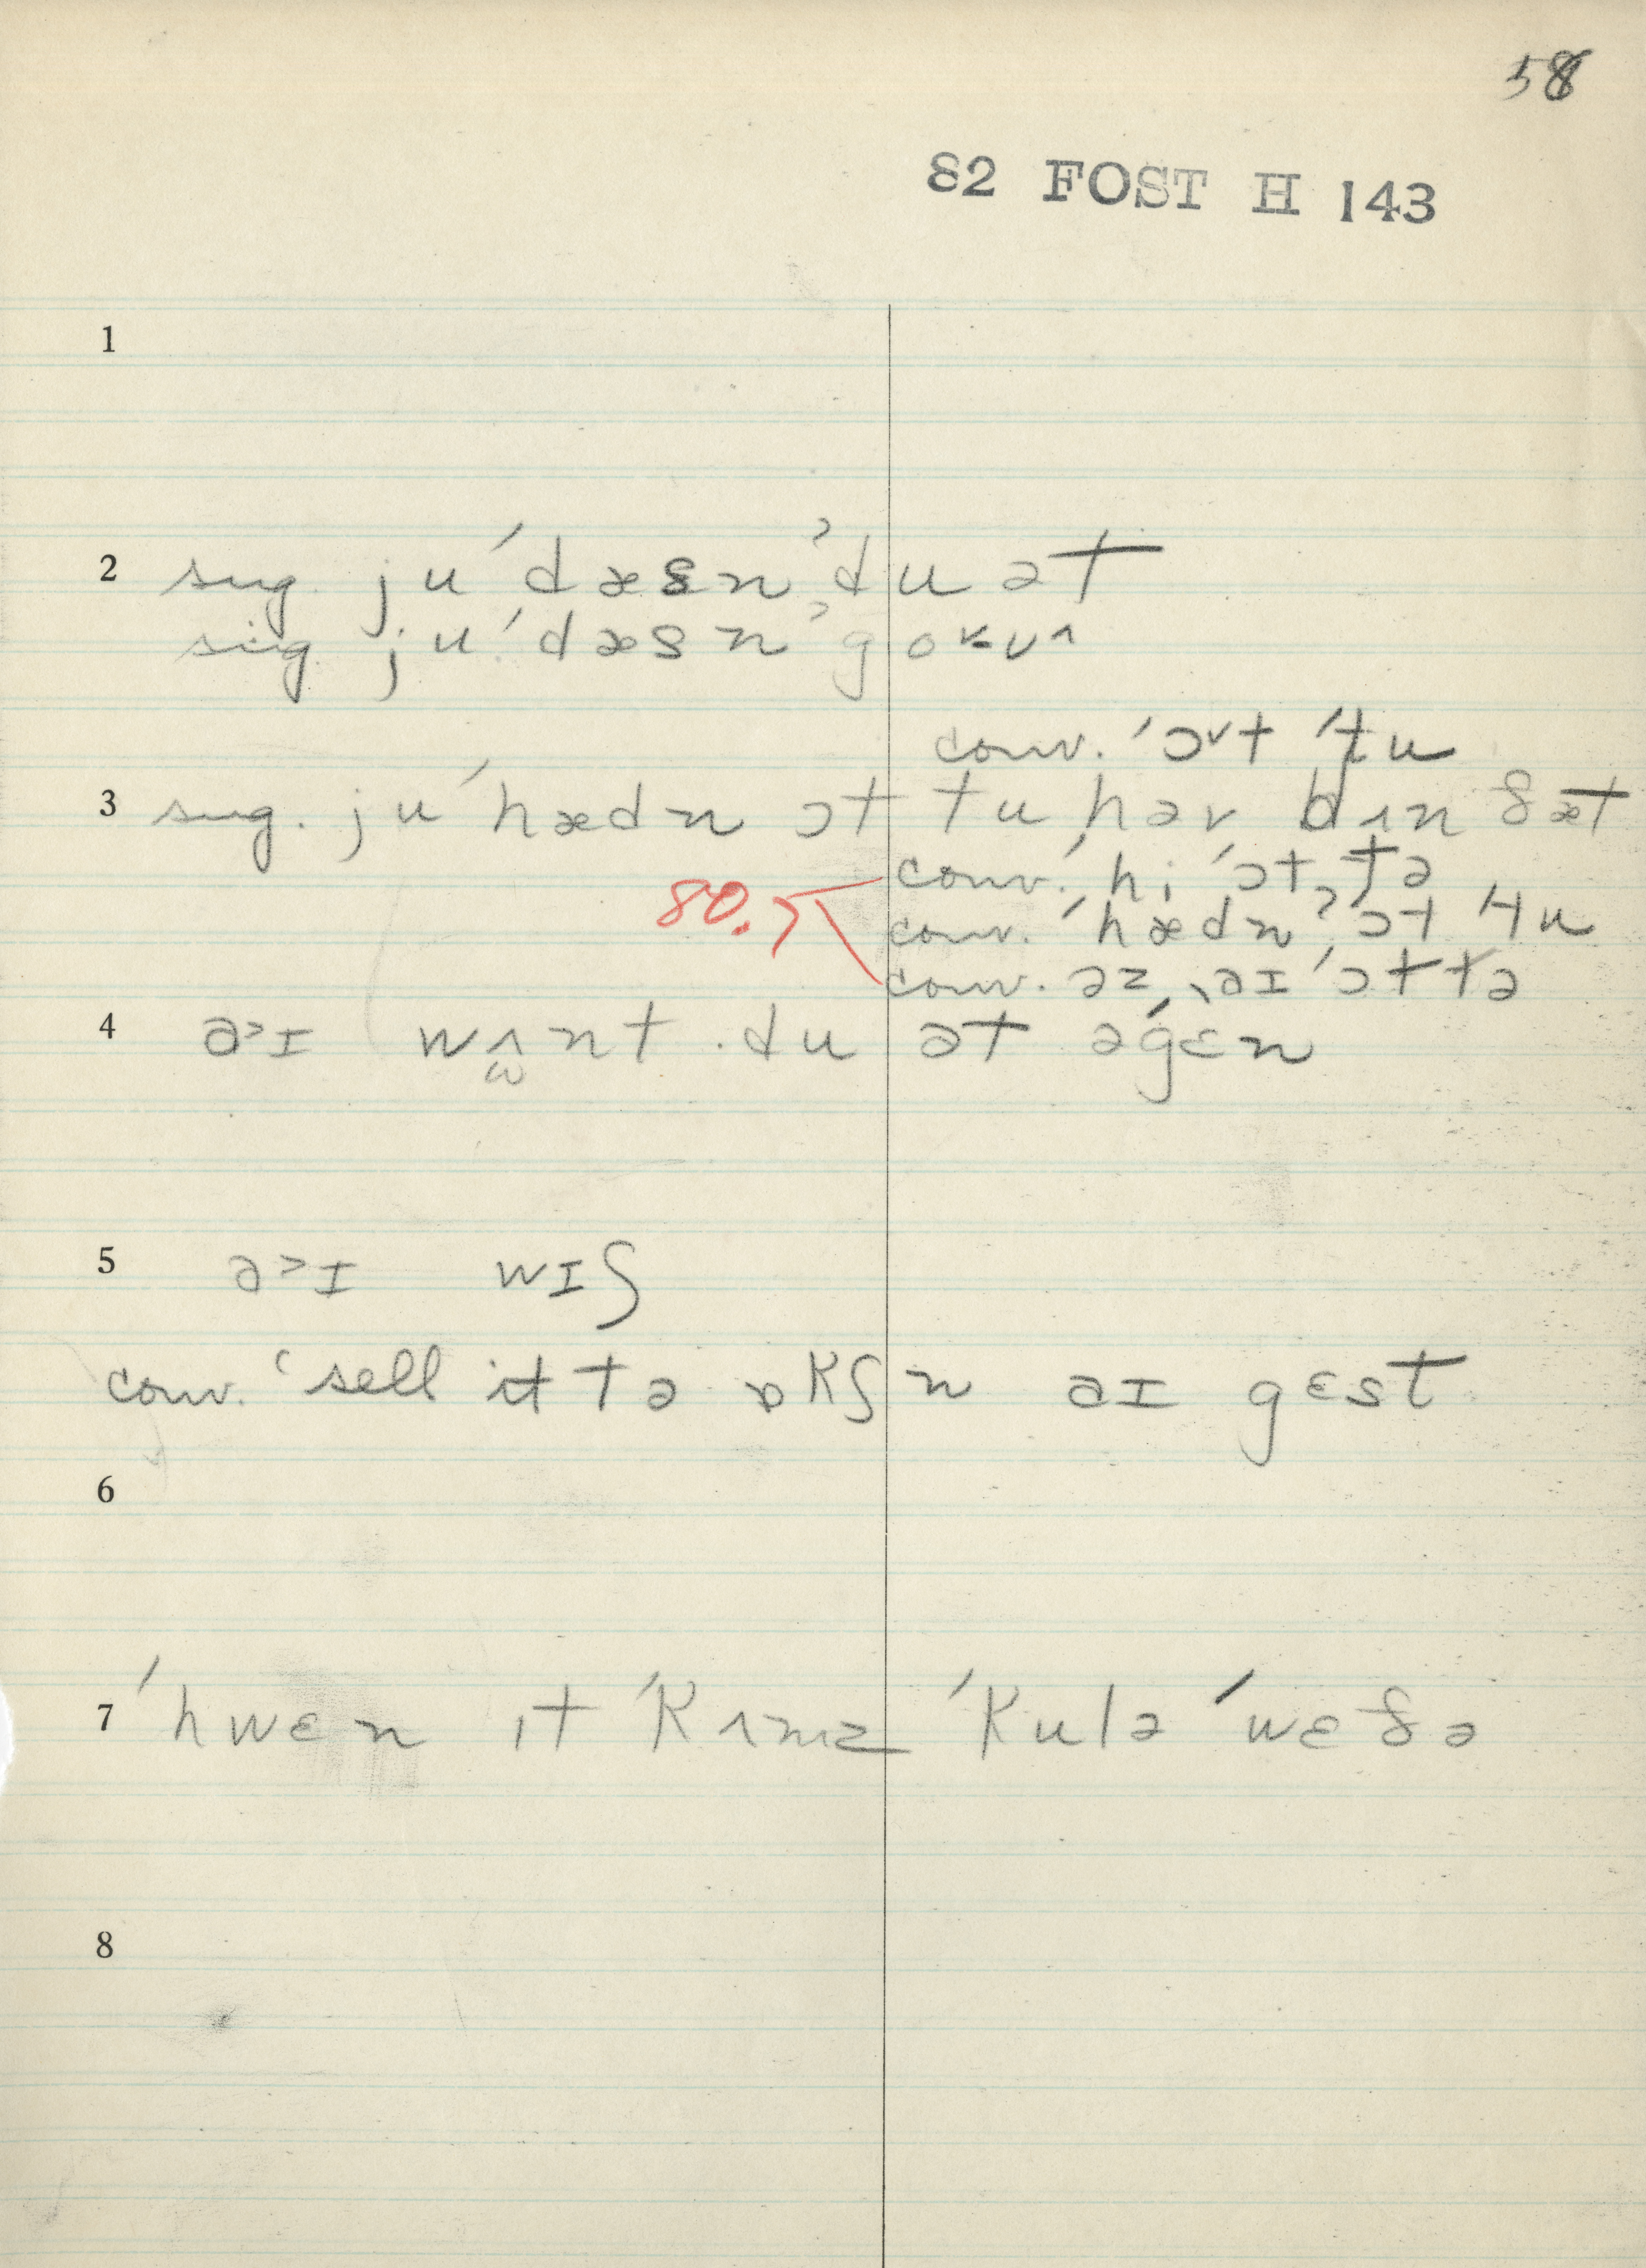 58
82 FOST H 143
1
2 sug. ju ˈdæsnˀ du ət
sug. ju ˈdæsnˀ go˞ʊ^
conv. ˈɔ˅t ˈtu
3 sug. ju ˈhædn ɔt tu həv bɪn ðæt
conv. ˈhi ˈɔt tə
80.7 conv. ˈhædnˀ ɔt ˈtu
conv. əz ˌaɪ ˈɔt tə
4 a>ɪ wʌnt du ət əˈgɛn
5 a>ɪ wɪʃ
conv. ‘sell it tə ɒkʃn aɪ gɛst
6
7 ˈhwɛn ɪt ˈkʌmz ˈkulə ˈwɛðə
8